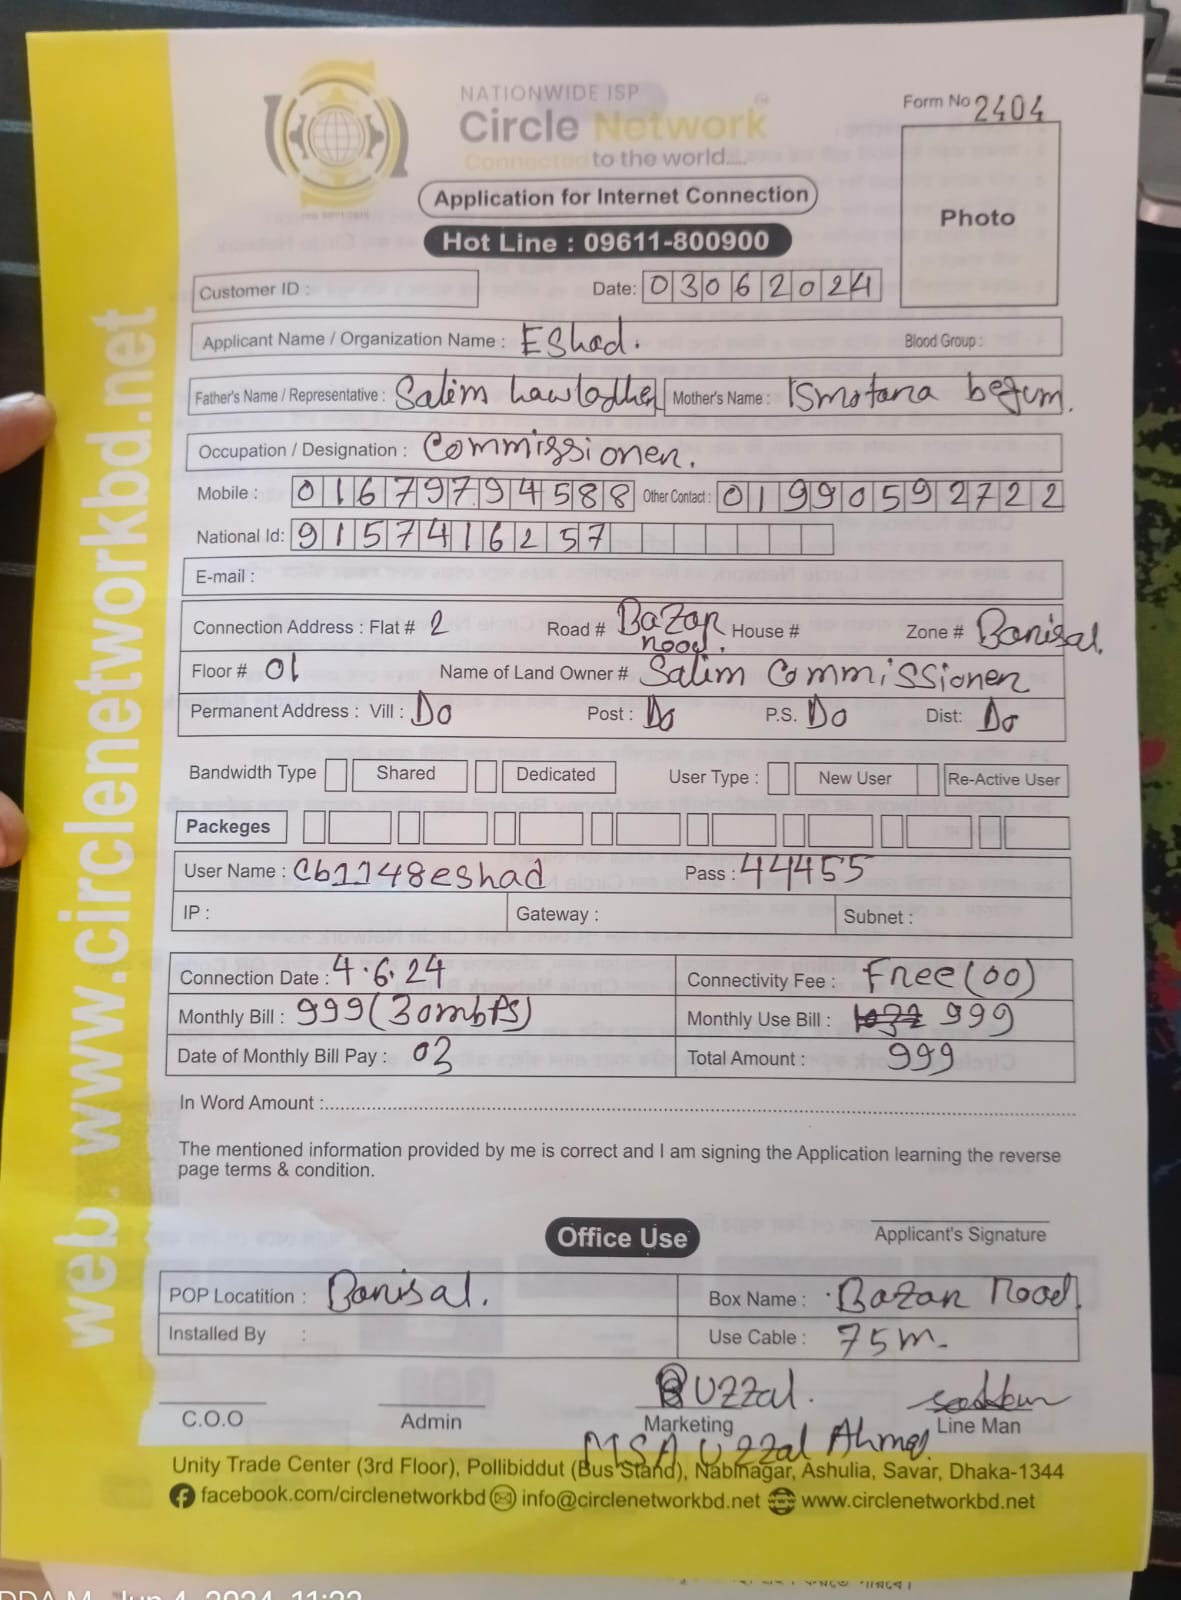 NATIONWIDE ISP
Circle Network
Connected to the world.....
Form No 2404
Application for Internet Connection
Photo
Hot Line : 09611-800900
Customer ID :
Date: 03062024
Applicant Name / Organization Name : Eshad. Blood Group :
Father's Name / Representative : Salim hawladher Mother's Name : Ismotara begum.
Occupation / Designation : Commissioner.
Mobile : 01679794588 Other Contact : 01990592722
National Id: 9157416257
E-mail :
Connection Address : Flat # 2 Road # Bazar Rood. House # Zone # Barisal.
Floor # 01 Name of Land Owner # Salim Commissioner
Permanent Address : Vill : Do Post : Do P.S. Do Dist: Do
Bandwidth Type Shared Dedicated User Type : New User Re-Active User
Packeges
User Name : Cb1148eshad Pass : 44455
IP : Gateway : Subnet :
Connection Date : 4.6.24 Connectivity Fee : Free(00)
Monthly Bill : 999(30mbPS) Monthly Use Bill : 999
Date of Monthly Bill Pay : 03 Total Amount : 999
In Word Amount :
The mentioned information provided by me is correct and I am signing the Application learning the reverse
page terms & condition.
Office Use Applicant's Signature
POP Locatition : Barisal. Box Name : Bazar Rood.
Installed By : Use Cable : 75m.
UZZal.
C.O.O Admin Marketing Line Man
MSA Uzzal Ahmed
Unity Trade Center (3rd Floor), Pollibiddut (Bus Stand), Nabinagar, Ashulia, Savar, Dhaka-1344
facebook.com/circlenetworkbd info@circlenetworkbd.net www.circlenetworkbd.net
web: www.circlenetworkbd.net